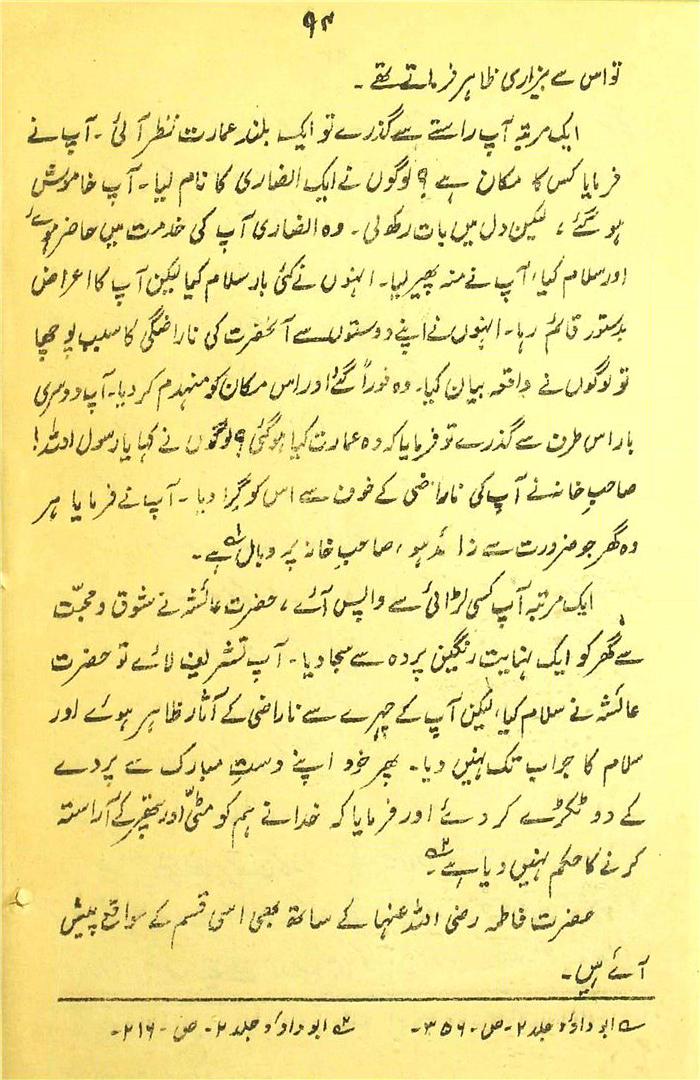 ۹۴
تو اس سے بیزاری ظاہر فرماتے تھے۔
ایک مرتبہ آپ راستے سے گذرے تو ایک بلند عمارت نظر آئی۔ آپ نے
فرمایا کس کا مکان ہے؟ لوگوں نے ایک انصاری کا نام لیا۔ آپ خاموش
ہو گئے، لیکن دل میں بات رکھ لی۔ وہ انصاری آپ کی خدمت میں حاضر ہوئے
اور سلام کیا، آپ نے منہ پھیر لیا۔ انہوں نے کئی بار سلام کیا لیکن آپ کا اعراض
بدستور قائم رہا۔ انہوں نے اپنے دوستوں سے آنحضرت کی ناراضگی کا سبب پوچھا
تو لوگوں نے واقعہ بیان کیا۔ وہ فوراً گئے اور اس مکان کو منہدم کر دیا۔ آپ دوسری
بار اس طرف سے گذرے تو فرمایا کہ وہ عمارت کیا ہو گئی؟ لوگوں نے کہا یا رسول اللہ!
صاحبِ خانہ نے آپ کی ناراضی کے خوف سے اس کو گرا دیا۔ آپ نے فرمایا ہر
وہ گھر جو ضرورت سے زائد ہو، صاحبِ خانہ پر وبال ہے۱؎۔
ایک مرتبہ آپ کسی لڑائی سے واپس آئے، حضرت عائشہؓ نے شوق و محبّت
سے گھر کو ایک نہایت رنگین پردہ سے سجا دیا۔ آپ تشریف لائے تو حضرت
عائشہؓ نے سلام کیا، لیکن آپ کے چہرے سے ناراضی کے آثار ظاہر ہوئے اور
سلام کا جواب تک نہیں دیا۔ پھر خود اپنے دستِ مبارک سے پردے
کے دو ٹکڑے کر دئے اور فرمایا کہ خدا نے ہم کو مٹی اور پتھر کے آراستہ
کرنے کا حکم نہیں دیا ہے۲؎۔
حضرت فاطمہ رضی اللہ عنہا کے ساتھ بھی اسی قسم کے مواقع پیش
آئے ہیں۔
۱؎ ابو داؤد جلد ۲۔ ص۔ ۳۵۶۔ ۲؎ ابو داؤد جلد ۲۔ ص۔ ۲۱۶۔